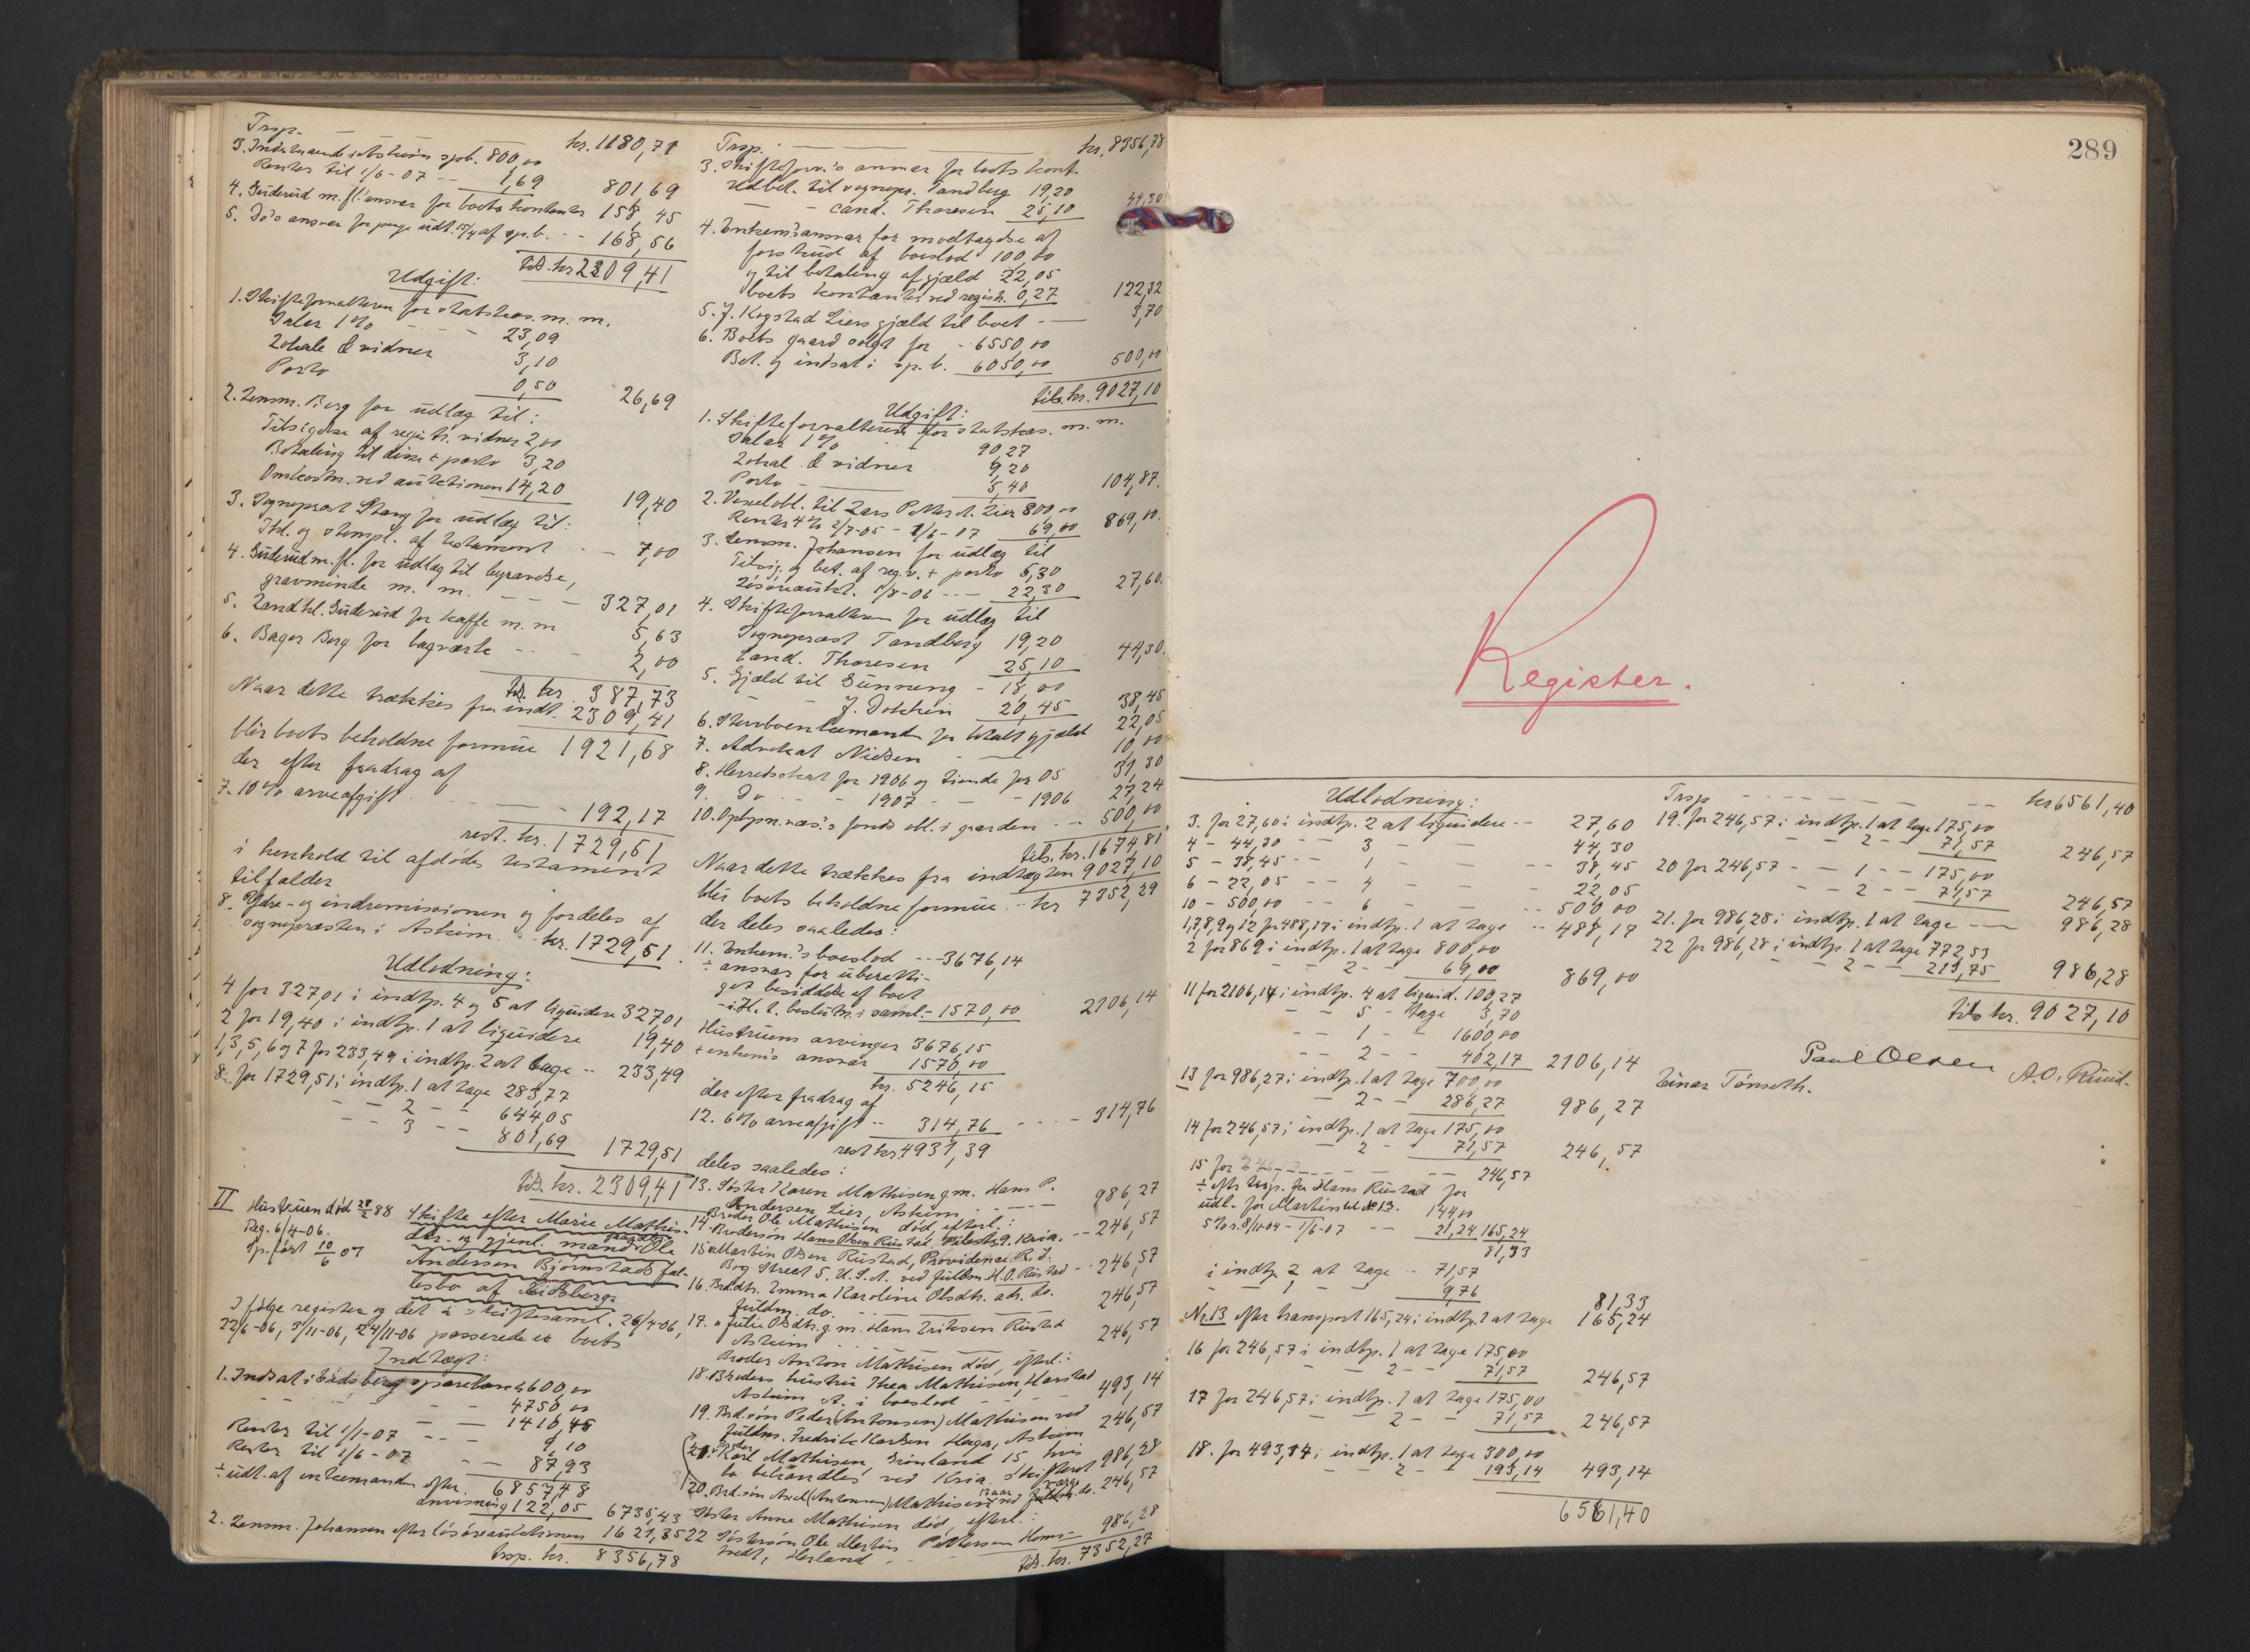 Trsp. — kr. 1180,71
3. Indestaaende i Askim spb. 800,00
Renter til 1/6-07 -- 1,69 801 69
4. Guderud m. fl. ansvar for boets kontanter 158,45
5. Do's ansvar for penge udt. 15/4 af sp.b. -- 168,56
tils. kr. 2309,41
Udgift:
1. Skifteforvalteren for statskas. m. m.
Salær 1% - - - 23,09
Lokale & vidner 3,10
Porto 0,50 26,69
2. Lensm. Berg for udlæg til:
Tilsigelse af registr. vidner 2,00
Betaling til disse + porto 3,20
Omkostn. ved auktionen 14,20 19,40
3. Sogneprest Stang for udlæg til:
Itd. og stempl. af testament - - 7,00
4. Guderud m. fl. for udlæg til begravelse,
gravminde m. m. — — — 327,01
5. Landhl. Guderud for kaffe m. m 5,63
6. Bager Berg for bagværk - - - 2,00
tils. kr. 387,73
Naar dette trækkes fra indt. 2309,41
blir boets beholdne formue 1921,68
der efter fradrag af
7. 10% arveafgift - — — - 192,17
rest. kr. 1729,51
i henhold til afdødes testament
tilfalder
8. Ydre- og indremissionen og fordeles af
sognepresten i Askim - - kr. 1729,51
Udlodning:
4 for 327,01 i indtp. 4 og 5 at liquidere 327,01
2 for 19,40 i indtp. 1 at liquidere 19,40
1, 3, 5, 6 og 7 for 233,49 i indtp. 2 at tage -- 233,49
8. for 1729,51 i indtp. 1 at tage 283,77
— — 2 - - 644,05
- — 3 - - 801,69 1729,51
tils. kr. 2309,41
II Hustruen død 28/2 88
Reg. 6/4-06.
Sp. ført 10/6 07
Skifte efter Marie Mathis-
dtr. og gjenl. mand Ole
Andersen Bjørnstad
af Eidsberg.
I følge register og det i skiftesaml. 26/4-06,
22/6-06, 3/11-06, 24/11-06 passerede er boets
Indtægt:
1. Indsat i Eidsberg sparebank 600,00
- - - — — - 4750,00
- — — 1410,45
Renter til 1/1-07 - - - 9,10
Renter til 1/6-07 - - 87,93
6857,48
÷ udt. af enkemanden efter
anvisning 122,05 6735,43
2. Lensm. Johansen efter løsøreauktionen 1621,35
trsp. kr. 8356,78
Trsp. — — — kr. 8356,78
3. Skifteforv.'s ansvar for boets kont.
Udbet. til sognepr. Tandberg 19,20
— - cand. Thoresen 25,10 44,30
4. Enkem's ansvar for modtagelse af
forskud af boeslod 100,00
og til betaling af gjæld 22,05
boets kontanter ved registr. 0,27 122,32
5. J. Kogstad Liers gjæld til boet - — 3,70
6. Boets gaard solgt for - 6550,00
Bet. og indsat i sp. b. 6050,00 500,00
tils. kr. 9027,10
Udgift:
1. Skifteforvalteren for statskas. m. m.
Salær 1% - - - 90,27
Lokal & vidner 9,20
Porto - — 5,40 104,87.
2. Vexelobl. til Lars Petter A. Lier 800,00
Renter 4% 2/7-05 - 1/6-07 69,00 869,00.
3. Lensm. Johansen for udlæg til
Tilsig. og bet. af reg. v. + porto 5,30
Løsøreaukt. 1/8-06 - - - 22,30 27,60.
4. Skifteforvalteren for udlæg til
Sogneprest Tandberg 19,20
Cand. Thoresen 25,10 44,30.
5. Gjæld til Gunneng - 18,00
- J. Dokken 20,45 38,45
6. Sterboenkemand for betalt gjæld 22,05
7. Advokat Nielsen - — 10,00
8. Herredsskat for 1906 og tiende for 05 31,30
9. Do - - - 1907 - - - 1906 27,24
10. Oplysn.væs.'s fonds obl. i gaarden - - 500,00
tils. kr. 1674,81
Naar dette trækkes fra indtægten 9027,10
blir boets beholdne formue - - kr 7352,29
der deles saaledes:
11. Enkem.'s boeslod - - - 3676,14
÷ ansvar for uberetti-
get besiddelse af boet
- i H. t. beslutn. i saml. - 1570,00 2106,14
Hustruens arvinger 3676,15
+ enkem's ansvar 1570,00
kr. 5246,15
der efter fradrag af
12. 6% arveafgift - - 314,76 - - - - 314,76
rest kr. 4931,39
deles saaledes:
13. Søster Karen Mathisen g.m. Hans P.
Andersen Lier, Askim - - - — 986,27
Broder Ole Mathisen død, efterl.:
14. Brodersøn Hans Olsen Rustad, Kria. -- 246,57
15. " Martin Olsen Rustad, Providence R. I.
Bog Street 5, U.S.A. ved fuldm. H. O. Rustad -- 246,57
16. Brd.dtr. Emma Karoline Olsdtr. adr. do.
fuldm. do. - - — — 246,57
17. " Julie Olsdtr. g. m. Hans Eriksen Rustad
Askim - - - - - 246,57
Broder Anton Mathisen død, efterl.:
18. Broders hustru Thea Mathisen, Harstad
Askim st. i boeslod - - - 493,14
19. Brd.søn Peder (Antonsen) Mathisen ved
fuldm. Fredrik Karlsen Haga, Askim 246,57
21. Broder Karl Mathisen, Grønland 15 hvis
bo behandles ved Kria. skifteret 986,28
20. Brd.søn Axel (Antonsen) Mathisen ved værge do. 246,57
Søster Anne Mathisen død, efterl.:
22 Søstersøn Ole Martin Pettersen Hams-
tvedt, Herland - - 986,28
tils. kr. 7352,27
289
Register.
Udlodning:
3. for 27,60 i indtp. 2 at liquidere -- 27,60
4 - 44,30 - - 3 - - 44,30
5 - 38,45 - - 1 - - - 38,45
6 - 22,05 - - 4 - - - 22,05
10 - 500,00 - - 6 - - - - 500,00
1,7,8,9 og 12 for 488,17 i indtp. 1 at tage -- 488,17
2 for 869 i indtp. 1 at tage 800,00
- - 2 - - 69,00 869,00
11 for 2106,14 i indtp. 4 at liquid. 100,27
- - 5 - tage 3,70
- - 1 - - 1600,00
- - 2 - - 402,17 2106,14
13 for 986,27 i indtp. 1 at tage 700,00
— 2 - - 286,27 986,27
14 for 246,57 i indtp. 1 at tage 175,00
- 2 - 71,57 246,57
15 for - - - - - - - 246,57
÷ efter trsp. fra Hans Rustad for
udl. for Martin til № 13. 144,00
5% r. 8/11-04 - 1/6-07 - - 21,24 165,24
81,33
i indtp. 2 at tage -- 71,57
- - 1 - - 9,76 81,33
Nr. 13 efter transport 165,24 i indtp. 2 at tage 165,24
16 for 246,57 i indtp. 1 at tage 175,00
- - 2 - - 71,57 246,57
17 for 246,57 i indtp. 1 at tage 175,00
- - 2 - - 71,57 246,57
18. for 493,14 i indtp. 1 at tage 300,00
- - 2 - - 193,14 493,14
6561,40
Trsp - - - - - - - kr 6561,40
19. for 246,57 i indtp. 1 at tage 175,00
- - 2 - - 71,57 246,57
20 for 246,57 - - 1 - - 175,00
- - 2 - - 71,57 246,57
21. for 986,28 i indtp. 1 at tage — 986,28
22 for 986,28 i indtp. 1 at tage 772,53
- - 2 - - 213,75 986,28
tils kr. 9027,10
Paul Olsen
Einar Tønseth.
A. O. Ruud.